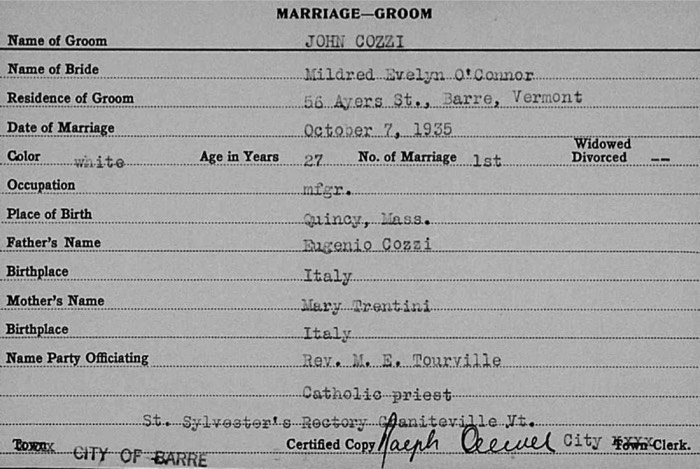 MARRIAGE—GROOM
Name of Groom JOHN COZZI
Name of Bride Mildred Evelyn O'Connor
Residence of Groom 56 Ayers St., Barre, Vermont
Date of Marriage October 7, 1935
Color white Age in Years 27 No. of Marriage 1st Widowed Divorced --
Occupation mfgr.
Place of Birth Quincy, Mass.
Father's Name Eugenio Cozzi
Birthplace Italy
Mother's Name Mary Trentini
Birthplace Italy
Name Party Officiating Rev. M. E. Tourville
Catholic priest
St. Sylvester's Rectory Graniteville Vt.
Town CITY OF BARRE Certified Copy Ralph City Town Clerk.